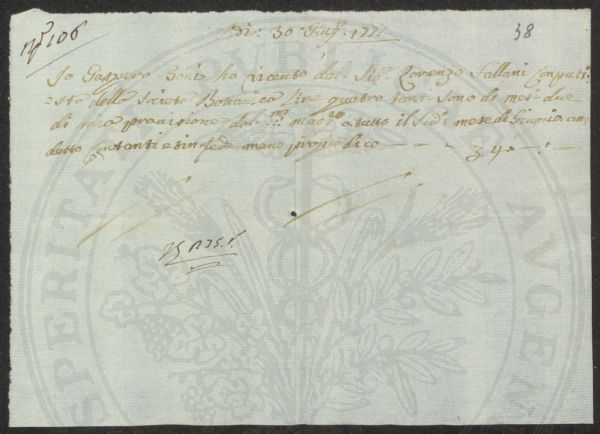 Nº 106
A Dì: 30 Giug.º 1777
38
Io Gaspero Boni ho riceuto dal Sig.r Lorenzo Fallani Computi
sta della Società Botanica lire quatro tanti sono di mesi due
di mia provisione dal p.mo magg.o a tutto il Sud.o mese di Giugnio, con
detto contanti e in fede mano propria dico - - - £ 4. - . -
PERITA PUBLICAE AUGEN